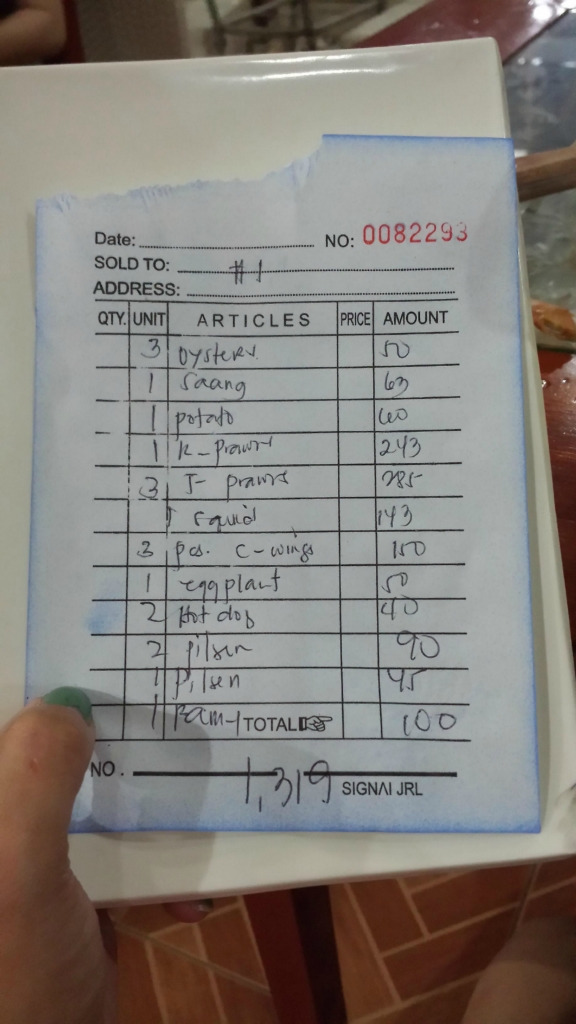 Date: NO: 0082293
SOLD TO: #1
ADDRESS:
QTY. UNIT ARTICLES PRICE AMOUNT
3 oysters 50
1 Saang 63
1 potato 60
1 K-prawns 243
3 J- prawns 285
1 squid 143
3 pcs. c-wings 150
1 eggplant 50
2 Hot dog 40
2 pilsen 90
1 Pilsen 45
1 TOTAL 100
NO. 1,319 SIGNAI JRL